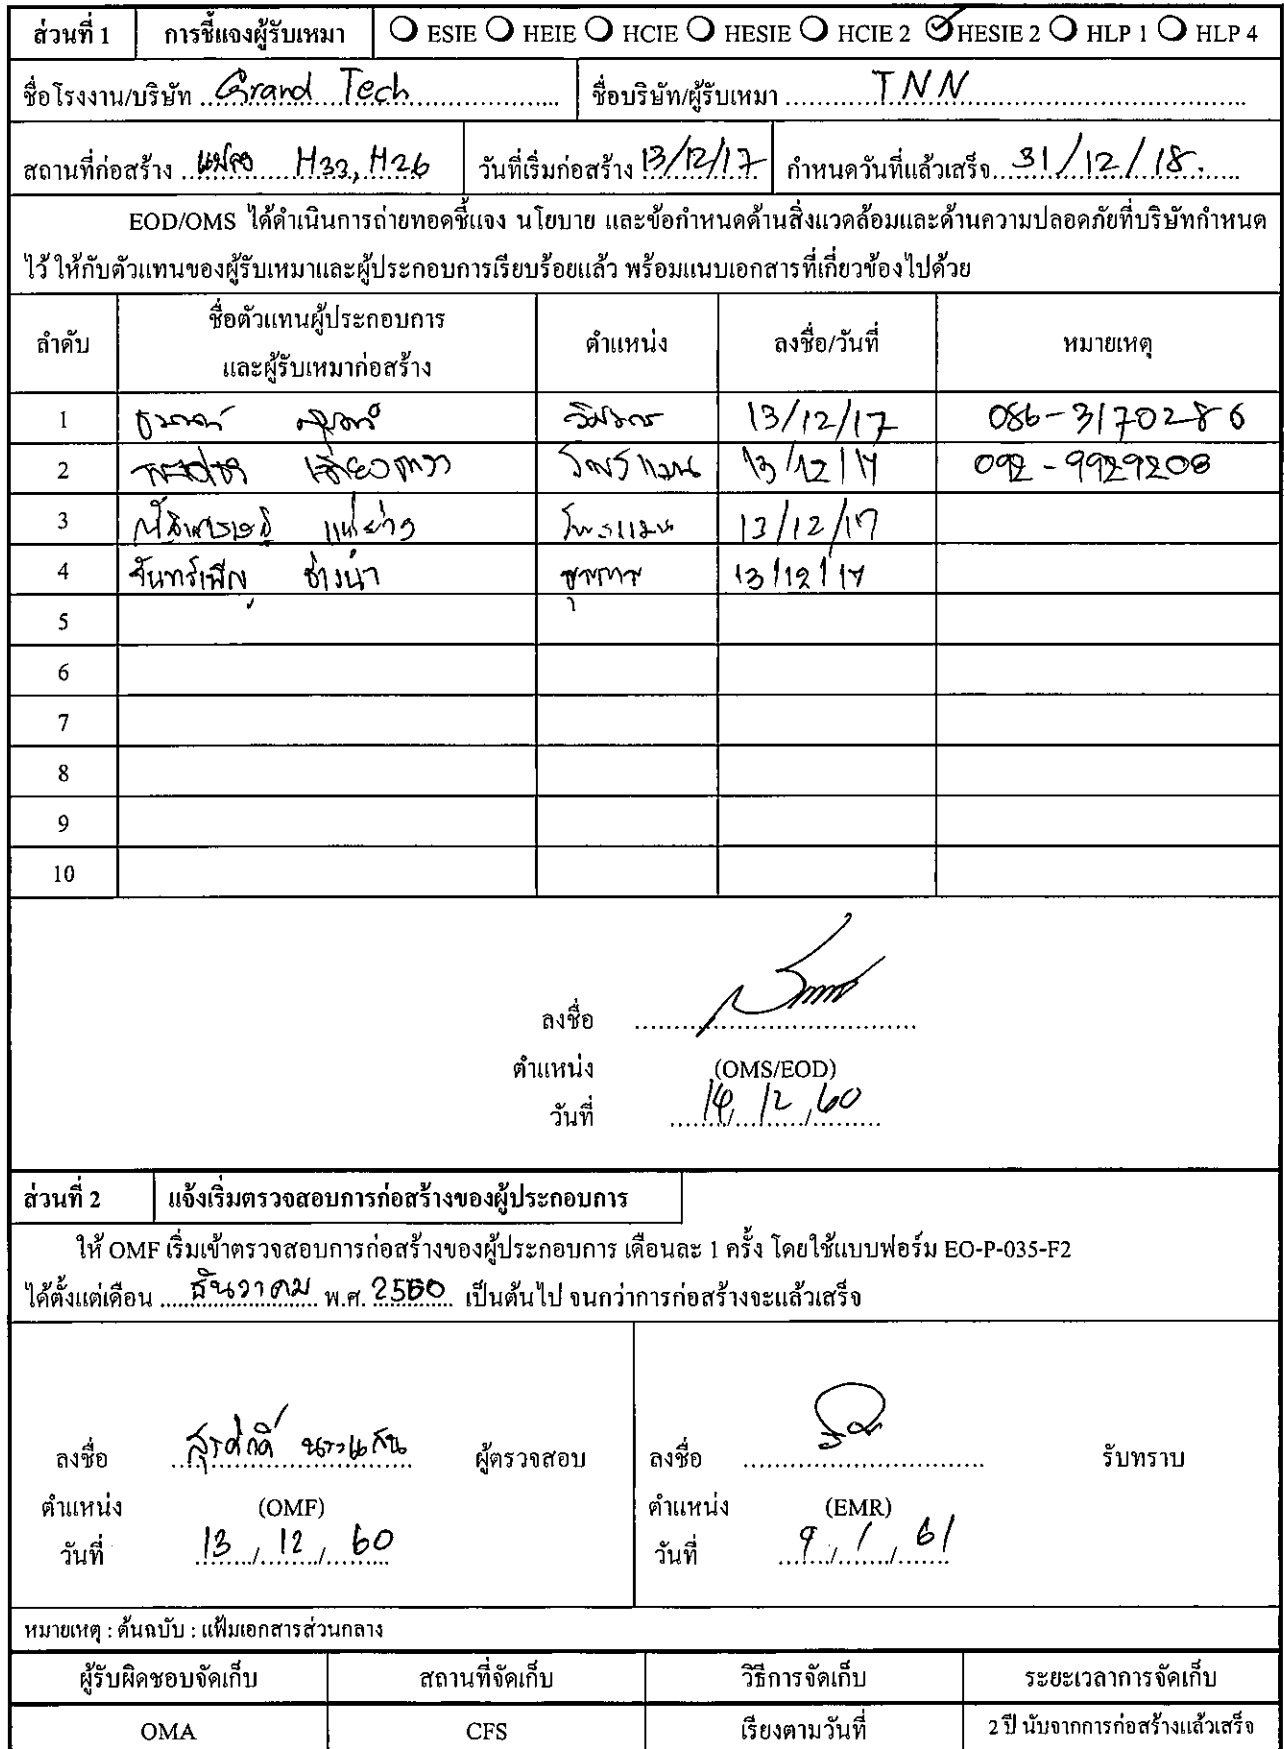 ส่วนที่ 1 การชี้แจงผู้รับเหมา ESIE HEIE HCIE HESIE HCIE 2 HESIE 2 HLP 1 HLP 4
ชื่อโรงงาน/บริษัท Grand Tech ชื่อบริษัท/ผู้รับเหมา TNN
สถานที่ก่อสร้าง แปลง H33, H26 วันที่เริ่มก่อสร้าง 13/12/17 กำหนดวันที่แล้วเสร็จ 31/12/18.
EOD/OMS ได้ดำเนินการถ่ายทอดชี้แจง นโยบาย และข้อกำหนดด้านสิ่งแวดล้อมและด้านความปลอดภัยที่บริษัทกำหนด
ไว้ ให้กับตัวแทนของผู้รับเหมาและผู้ประกอบการเรียบร้อยแล้ว พร้อมแนบเอกสารที่เกี่ยวข้องไปด้วย
ลำดับ ชื่อตัวแทนผู้ประกอบการ และผู้รับเหมาก่อสร้าง ตำแหน่ง ลงชื่อ/วันที่ หมายเหตุ
1 วิศวกร 13/12/17 086-3170286
2 โฟร์แมน 13/12/17 092-9929208
3 โฟรแมน 13/12/17
4 จันทร์เพ็ญ ช่างน้ำ ธุรการ 13/12/17
5
6
7
8
9
10
ลงชื่อ
ตำแหน่ง (OMS/EOD)
วันที่ 14/12/60
ส่วนที่ 2 แจ้งเริ่มตรวจสอบการก่อสร้างของผู้ประกอบการ
ให้ OMF เริ่มเข้าตรวจสอบการก่อสร้างของผู้ประกอบการ เดือนละ 1 ครั้ง โดยใช้แบบฟอร์ม EO-P-035-F2
ได้ตั้งแต่เดือน ธันวาคม พ.ศ. 2560 เป็นต้นไป จนกว่าการก่อสร้างจะแล้วเสร็จ
ลงชื่อ สุรศักดิ์ ผู้ตรวจสอบ ลงชื่อ รับทราบ
ตำแหน่ง (OMF) ตำแหน่ง (EMR)
วันที่ 13/12/60 วันที่ 9/1/61
หมายเหตุ : ต้นฉบับ : แฟ้มเอกสารส่วนกลาง
ผู้รับผิดชอบจัดเก็บ สถานที่จัดเก็บ วิธีการจัดเก็บ ระยะเวลาการจัดเก็บ
OMA CFS เรียงตามวันที่ 2 ปี นับจากการก่อสร้างแล้วเสร็จ